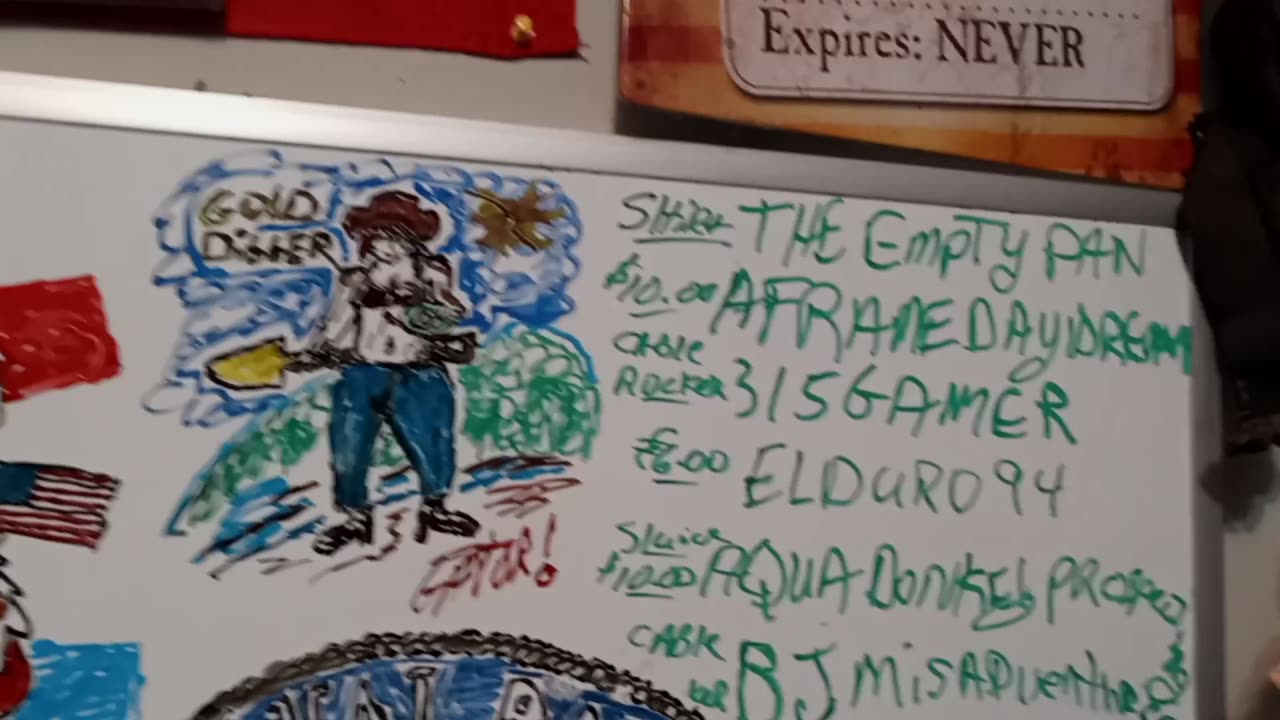 Expires: NEVER
GOLD
DIGGER
THE EmpTy PAN
$10.00 AFRAME DAyDREAM
CABLE
Rocker 315GAMER
ELDURO94
Sluice
$10.00 AQUA DONKEY
CABLE
BJ MISADVENTURES
GOTOR!